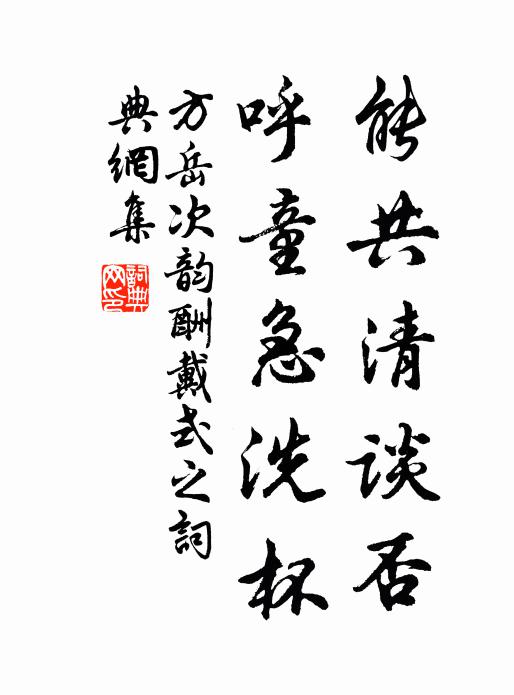 能共清談否
呼童急洗杯
方岳次韵酬戴式之詞
典網集
詞典
网印